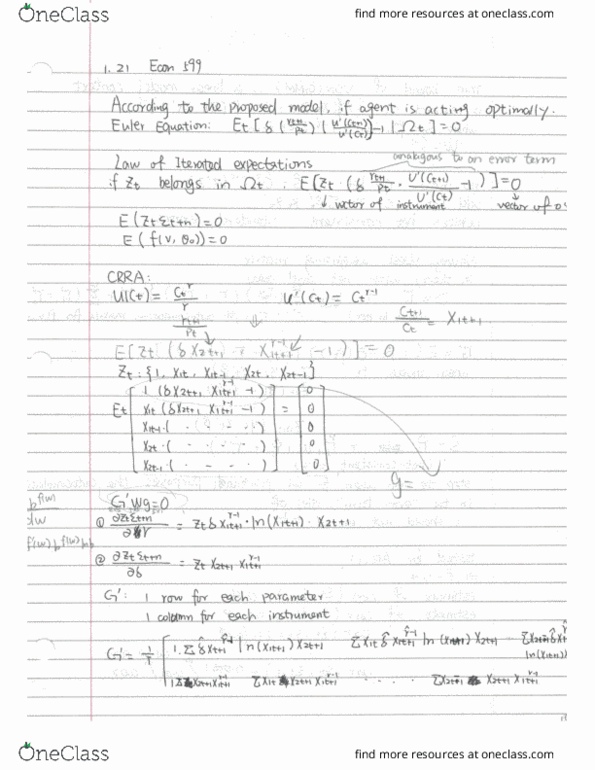 OneClass
find more resources at oneclass.com
1. 21 Econ 399
According to the proposed model, if agent is acting optimally.
Euler Equation: Et[δ(rt+1/Pt)(U'(Ct+1)/U'(Ct))-1|Ωt]=0
Law of Iterated expectations
analogous to an error term
if Zt belongs in Ωt, E[Zt(δ rt+1/Pt · U'(Ct+1)/U'(Ct) -1)]=0
↓ vector of instrument ↓ vector of 0'
E(Zt Σt+n)=0
E(f(V, θ0))=0
CRRA:
U(Ct)= Ct^γ/γ U'(Ct)=Ct^γ-1
rt+1/Pt Ct+1/Ct = X1t+1
E[Zt(δ X2t+1 · X1t+1^γ-1 -1)]=0
Zt:{1, X1t, X1t-1, X2t, X2t-1}
Et [1(δX2t+1 X1t+1^γ-1 -1)] = [0]
X1t(δX2t+1 X1t+1^γ-1 -1) 0
X1t-1( 0
X2t·( 0
X2t-1( 0
g=
G'Wg=0
① ∂ZtΣt+n/∂γ = Ztδ X1t+1^γ-1 · ln(X1t+1) · X2t+1
② ∂ZtΣt+n/∂δ = Zt X2t+1 X1t+1^γ-1
G': 1 row for each parameter
1 column for each instrument
G'= 1/T [1.Σδ̂X1t+1^γ̂-1 ln(X1t+1)X2t+1 ΣX1t δ̂ X1t+1^γ̂-1 ln(X1t+1) X2t+1
ln(X1t+1)
OneClass
find more resources at oneclass.com